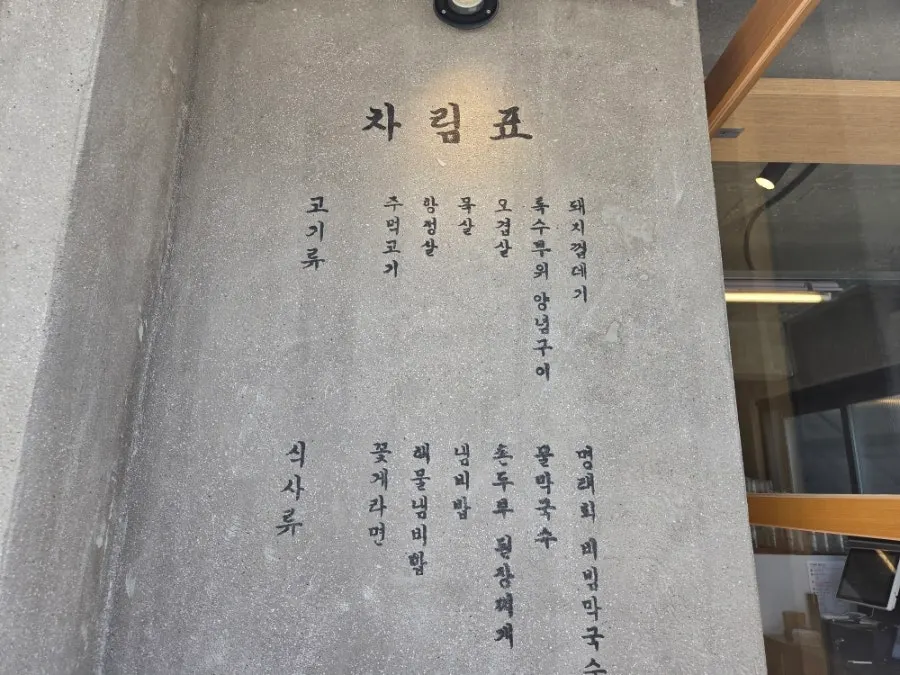 차림표
고기류
주먹고기
항정살
목살
오겹살
특수부위 양념구이
돼지껍데기
식사류
꽃게라면
해물냄비밥
냄비밥
손두부 된장찌개
물막국수
명태회 비빔막국수